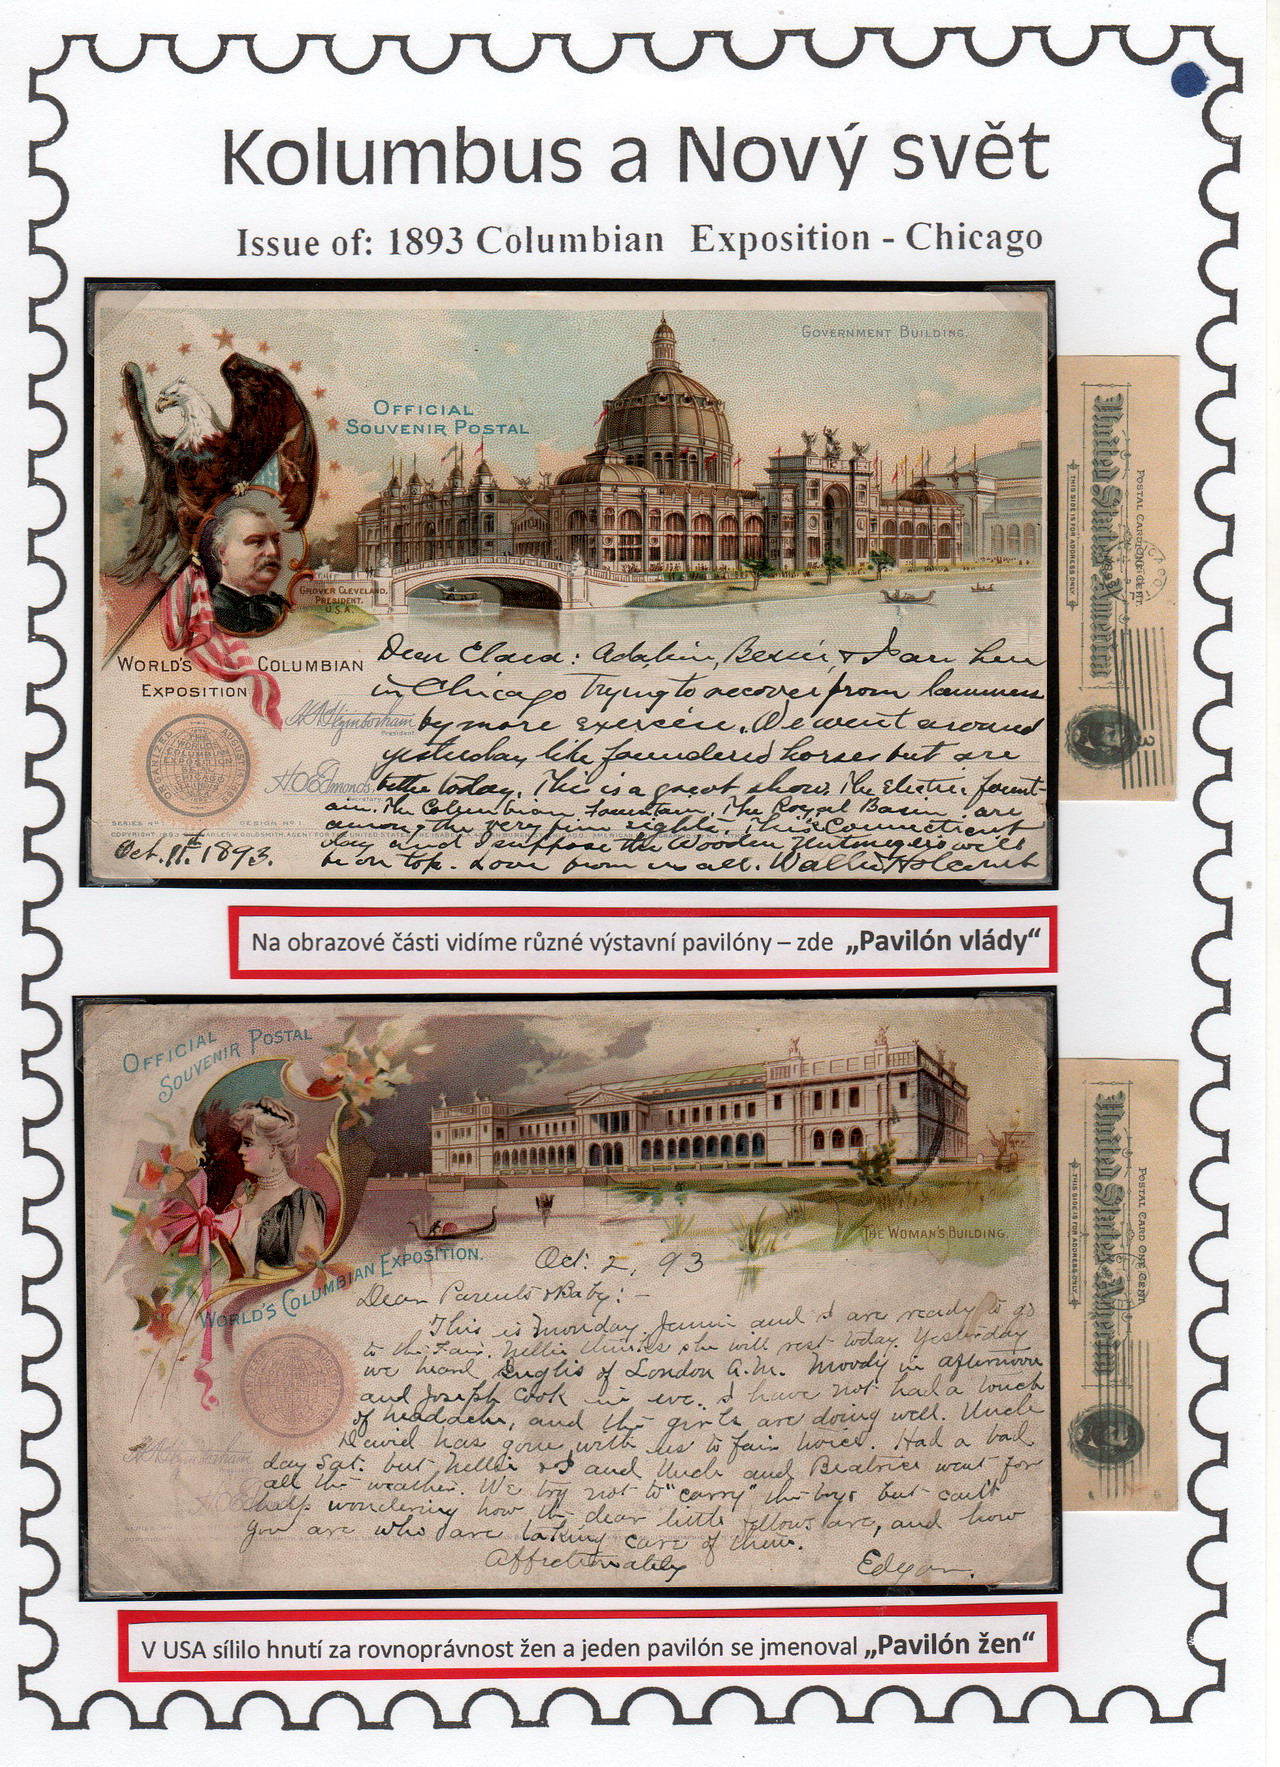 Kolumbus a Nový svět
Issue of: 1893 Columbian Exposition - Chicago
GOVERNMENT BUILDING.
OFFICIAL
SOUVENIR POSTAL
GROVER CLEVELAND,
PRESIDENT.
U.S.A.
WORLD'S COLUMBIAN
EXPOSITION
President
Dear Clara: Adakin, Bessie, & I are here
in Chicago trying to recover from lameness
by more exercise. We went around
yesterday like foundered horses but are
better today. This is a great show. The Electric fount-
ain. The Columbian Fountain, The Royal Basin are
among the very fine sights. This is Connecticut
day and I suppose the Wooden Nutmegers will
be on top. Love from us all. Wallie Holcomb
Oct. 11th 1893.
ORGANIZED AUGUST
United States of America
POSTAL CARD ONE CENT.
THIS SIDE IS FOR ADDRESS ONLY.
Na obrazové části vidíme různé výstavní pavilóny – zde „Pavilón vlády“
OFFICIAL
SOUVENIR POSTAL
THE WOMAN'S BUILDING.
WORLD'S COLUMBIAN EXPOSITION.
Oct. 2, 93
Dear Parents & Baby: -
This is Monday Jennie and I are ready to go
to the Fair. Nellie thinks she will rest today. Yesterday
we heard of London A.M. Moody in afternoon
and Joseph Cook in eve. I have not had a touch
of headache, and the girls are doing well. Uncle
David has gone with us to fair twice. Had a bad
day Sat. but Nellie & I and Uncle and Beatrice went for
all the weather. We try not to "carry" the boys but can't
help wondering how the dear little fellows are, and how
you are who are taking care of them.
Affectionately Edgar.
United States of America
POSTAL CARD ONE CENT.
THIS SIDE IS FOR ADDRESS ONLY.
V USA sílilo hnutí za rovnoprávnost žen a jeden pavilón se jmenoval „Pavilón žen“